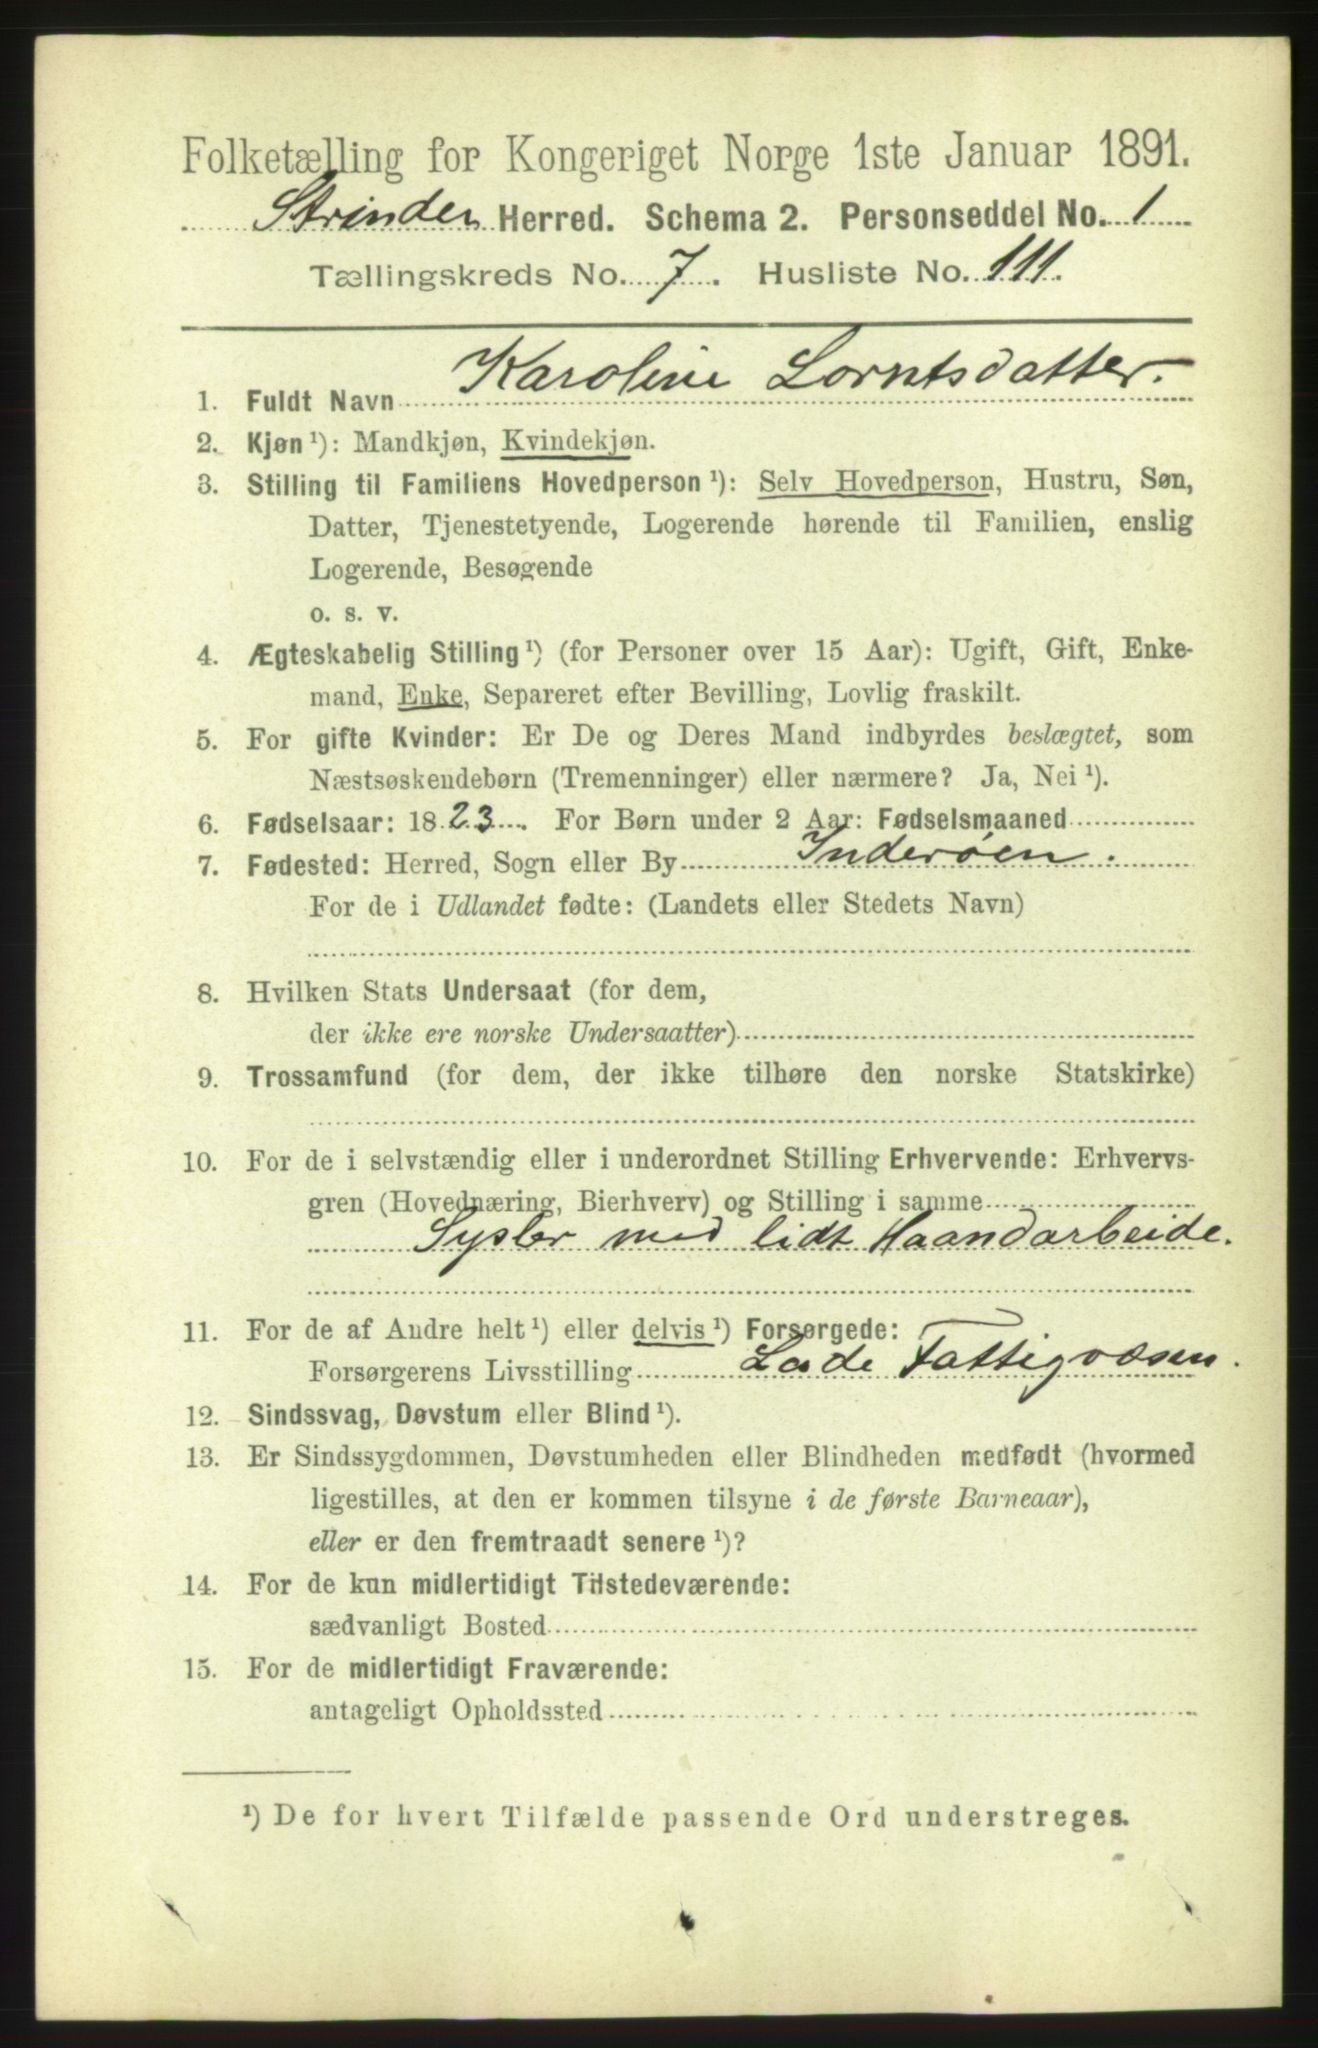 Folketælling for Kongeriget Norge 1ste Januar 1891.
Strinden Herred. Schema 2. Personseddel No. 1
Tællingskreds No. 7. Husliste No. 111.
1. Fuldt Navn Karoline Lorntsdatter.
2. Kjøn ¹): Mandkjøn, Kvindekjøn.
3. Stilling til Familiens Hovedperson ¹): Selv Hovedperson, Hustru, Søn,
Datter, Tjenestetyende, Logerende hørende til Familien, enslig
Logerende, Besøgende
o. s. v.
4. Ægteskabelig Stilling ¹) (for Personer over 15 Aar): Ugift, Gift, Enke-
mand, Enke, Separeret efter Bevilling, Lovlig fraskilt.
5. For gifte Kvinder: Er De og Deres Mand indbyrdes beslægtet, som
Næstsøskendebørn (Tremenninger) eller nærmere? Ja, Nei ¹).
6. Fødselsaar: 1823. For Børn under 2 Aar: Fødselsmaaned
7. Fødested: Herred, Sogn eller By Inderøen.
For de i Udlandet fødte: (Landets eller Stedets Navn)
8. Hvilken Stats Undersaat (for dem,
der ikke ere norske Undersaatter)
9. Trossamfund (for dem, der ikke tilhøre den norske Statskirke)
10. For de i selvstændig eller i underordnet Stilling Erhvervende: Erhvervs-
gren (Hovednæring, Bierhverv) og Stilling i samme
Sysler med lidt Haandarbeide.
11. For de af Andre helt ¹) eller delvis ¹) Forsørgede:
Forsørgerens Livsstilling Lade Fattigvæsen.
12. Sindssvag, Døvstum eller Blind ¹).
13. Er Sindssygdommen, Døvstumheden eller Blindheden medfødt (hvormed
ligestilles, at den er kommen tilsyne i de første Barneaar),
eller er den fremtraadt senere ¹)?
14. For de kun midlertidigt Tilstedeværende:
sædvanligt Bosted
15. For de midlertidigt Fraværende:
antageligt Opholdssted
¹) De for hvert Tilfælde passende Ord understreges.